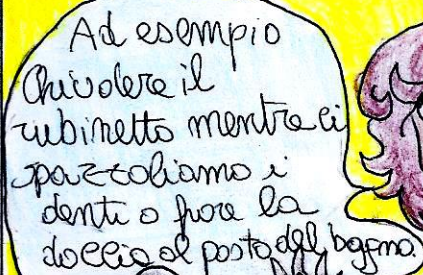 Ad esempio
Chiudere il
rubinetto mentre ci
spazzoliamo i
denti o fare la
doccia al posto del bagno.